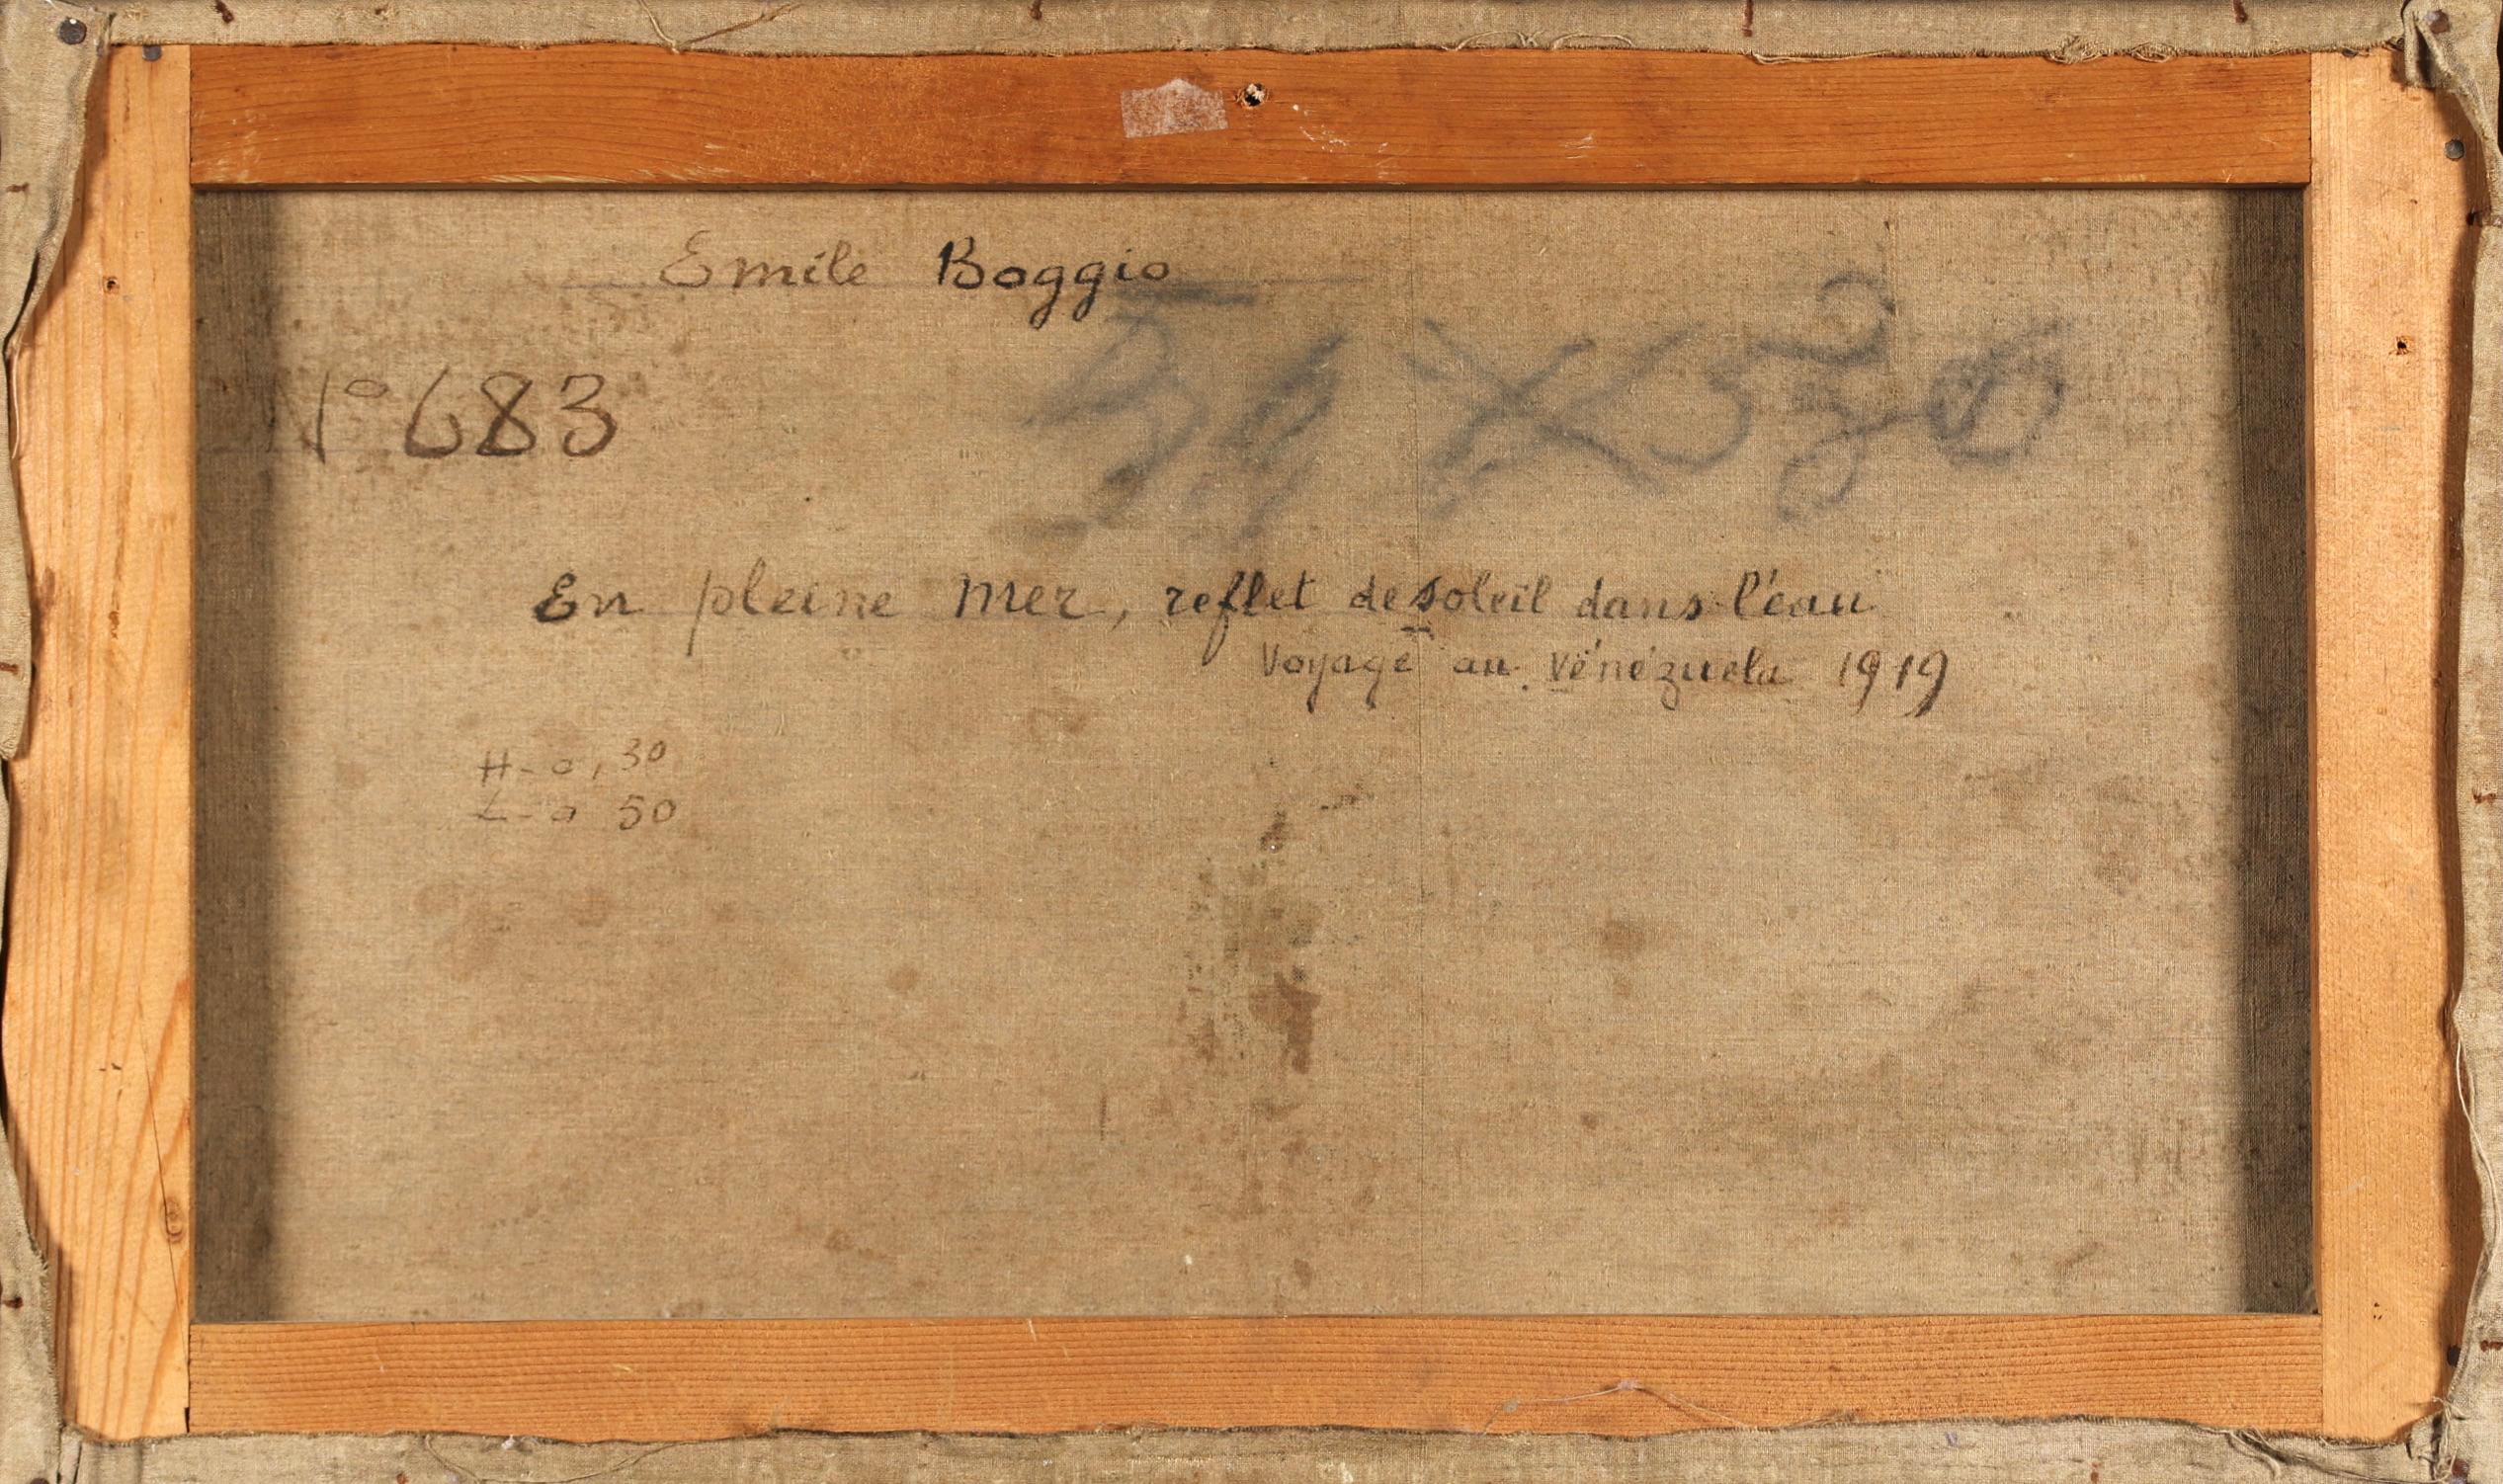 Emile Boggio
N° 683
En pleine Mer, reflet de soleil dans l'éau
Voyage au Vénézuela 1919
H - 0,30
L - 0 50